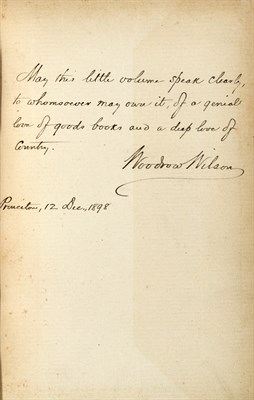 May this little volume speak clearly,
to whomsoever may own it, of a genial
love of goods books and a deep love of
Country.
Woodrow Wilson
Princeton, 12 Dec., 1898